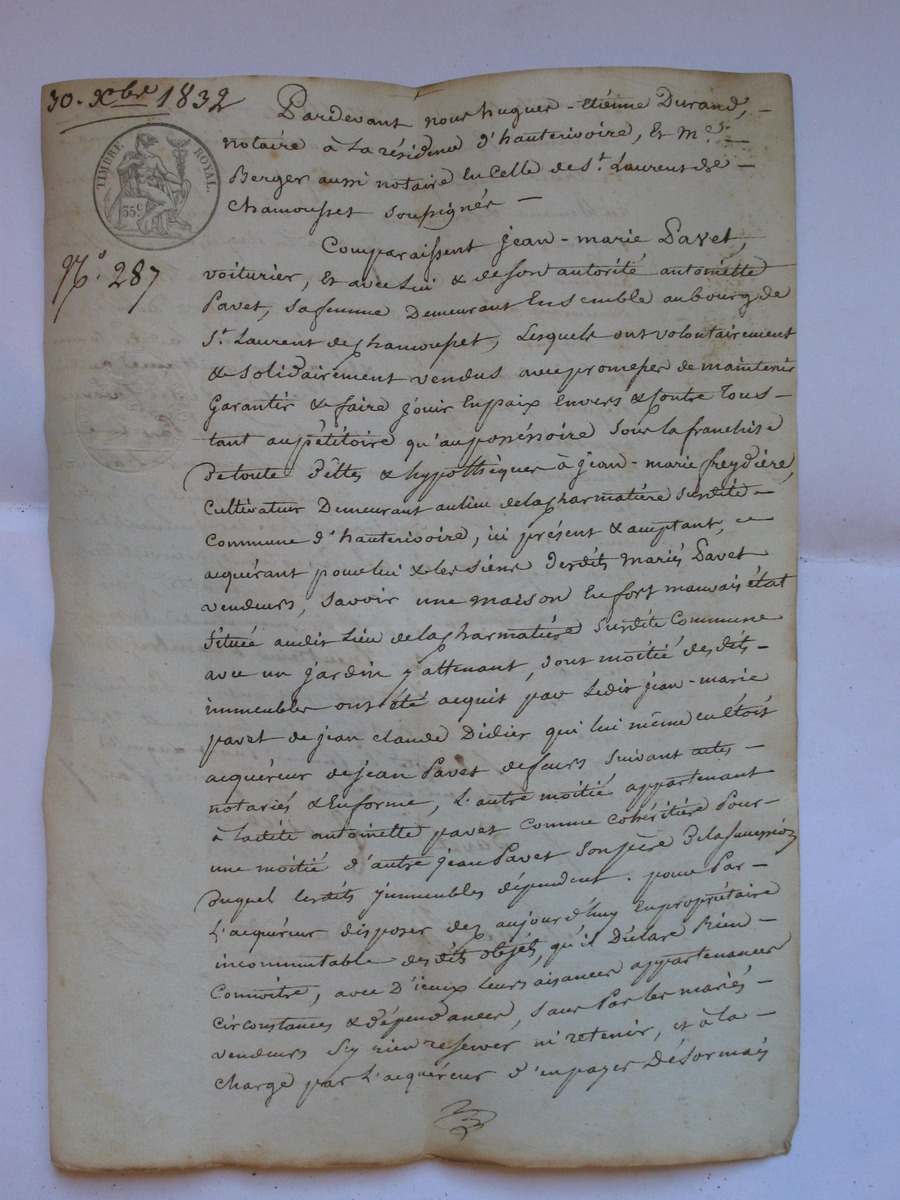 30. Xbre 1832
TIMBRE ROYAL.
35c
No. 287
Pardevant nous hugues - etiénne Durand, -
notaire à La résidence d'hauterivoire, Et Me. -
Berger aussi notaire En Celle de St. Laurent de -
Chamousset Soussignés -
Comparaissent jean - marie Pavet,
voiturier, Et avec Lui & de son autorité antoinette
Pavet, sa femme Demeurant Ensemble au bourg de
St. Laurent de Chamousset, Lesquels ont volontairement
& solidairement vendus avec promesses de maintenir
Garantir & faire joüir En paix Envers & Contre Tous -
tant au pétitoire qu'au possessoire Sous La franchise
De toute dettes & hypothèques à jean - marie freydière,
Cultivateur Demeurant au lieu de la Charmatière Susdite -
Commune d'hauterivoire, ici présent & acceptant, -
acquérant pour lui & les siens desdits mariés Pavet
vendeurs, savoir une maison En fort mauvais état
Située audit Lieu de la Charmatière Susdite Commune
avec un jardin y attenant, dont moitié desdits -
immeubles ont été acquis par Ledit jean - marie
pavet de jean claude Didier qui lui même en étoit
acquéreur de jean Pavet suivant actes -
notariés & En forme, L'autre moitié appartenant
à ladite antoinette pavet Comme cohéritière Pour -
une moitié d'autre jean Pavet Son père De la succession
Duquel lesdits immeubles dépendent. pour Par -
L'acquéreur disposer dez aujourd'huy En propriétaire
incommutable desdits objéts, qu'il Déclare Bien -
Connoitre, avec D'iceux leurs aisances appartenances
Circonstances & dépendances, sans Par les mariés -
vendeurs S'y rien reserver ni retenir, et à la -
Charge par L'acquéreur d'en payer Désormais